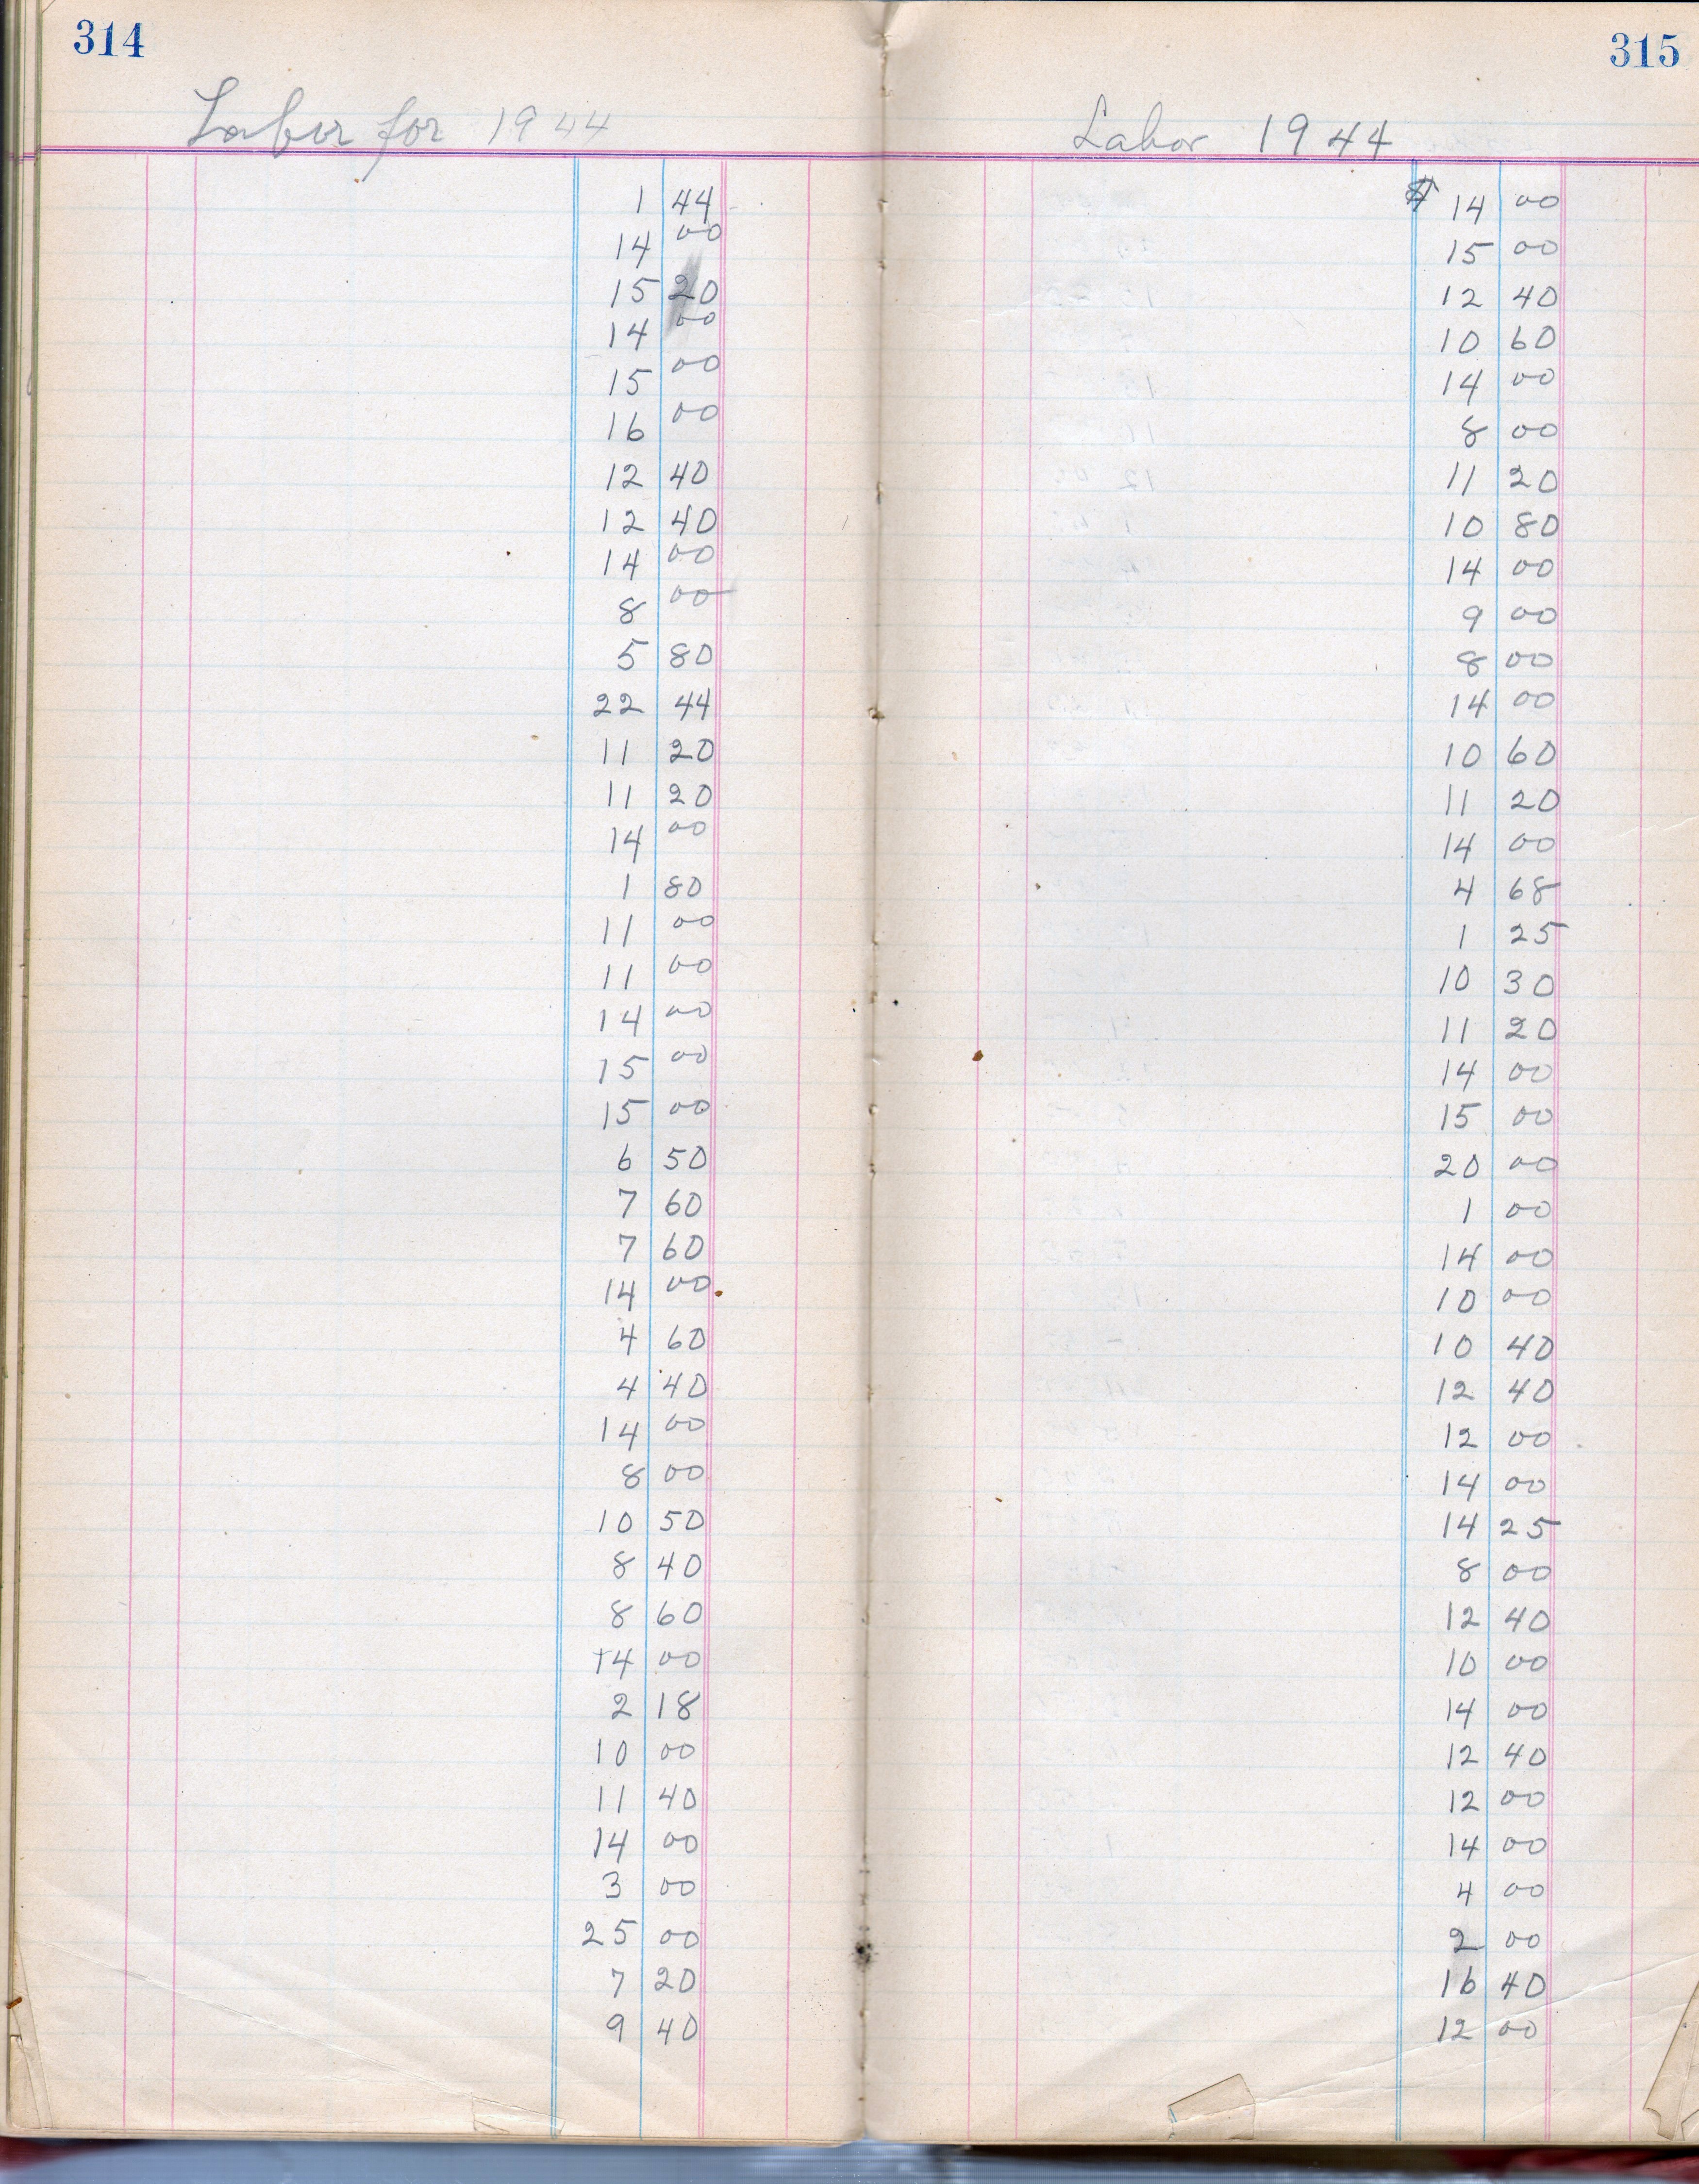 314
Labor for 1944
1 44
14 00
15 20
14 00
15 00
16 00
12 40
12 40
14 00
8 00
5 80
22 44
11 20
11 20
14 00
1 80
11 00
11 00
14 00
15 00
15 00
6 50
7 60
7 60
14 00
4 60
4 40
14 00
8 00
10 50
8 40
8 60
14 00
2 18
10 00
11 40
14 00
3 00
25 00
7 20
9 40
315
Labor 1944
$ 14 00
15 00
12 40
10 60
14 00
8 00
11 20
10 80
14 00
9 00
8 00
14 00
10 60
11 20
14 00
4 68
1 25
10 30
11 20
14 00
15 00
20 00
1 00
14 00
10 00
10 40
12 40
12 00
14 00
14 25
8 00
12 40
10 00
14 00
12 40
12 00
14 00
4 00
2 00
16 40
12 00